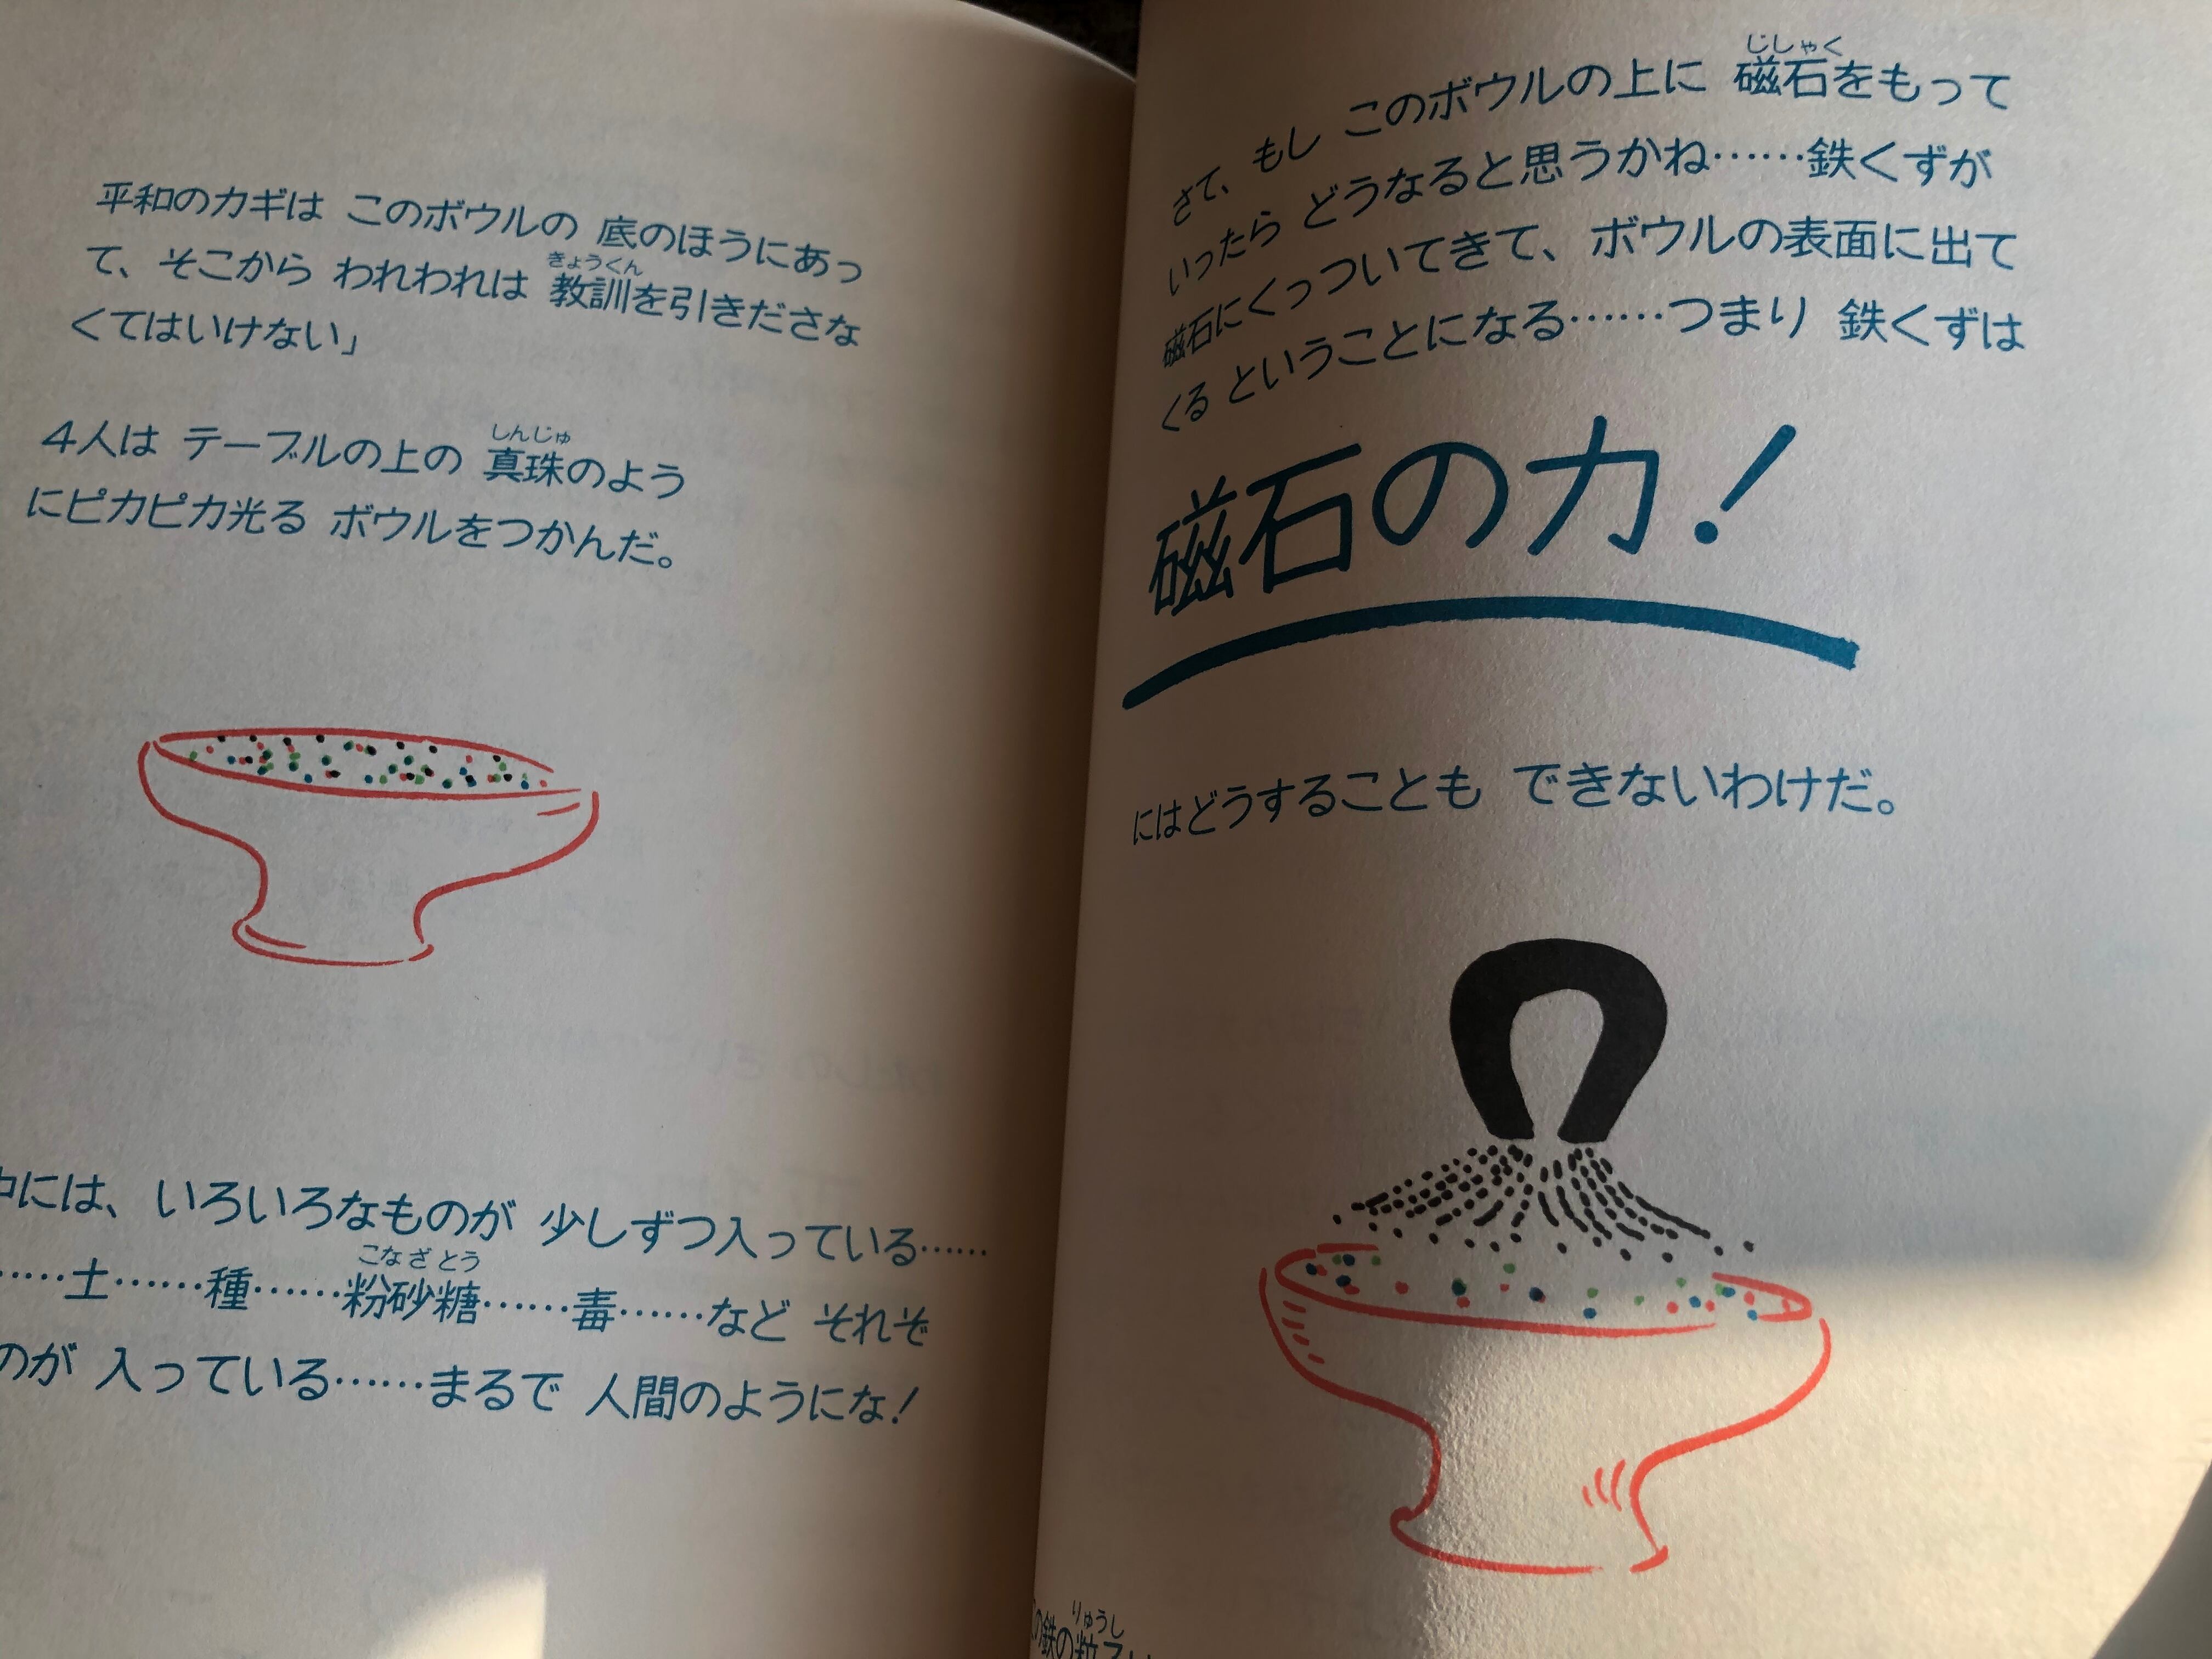 平和のカギは このボウルの 底のほうにあっ
て、そこから われわれは 教訓を引きださな
きょうくん
くてはいけない」
4人は テーブルの上の 真珠のよう
しんじゅ
にピカピカ光る ボウルをつかんだ。
中には、いろいろなものが 少しずつ入っている……
……土……種……粉砂糖……毒……など それぞ
こなざとう
のが 入っている……まるで 人間のようにな!
さて、もし このボウルの上に 磁石をもって
じしゃく
いったら どうなると思うかね……鉄くずが
磁石にくっついてきて、ボウルの表面に出て
くる ということになる……つまり 鉄くずは
磁石の力!
にはどうすることも できないわけだ。
の鉄の粒子
りゅうし